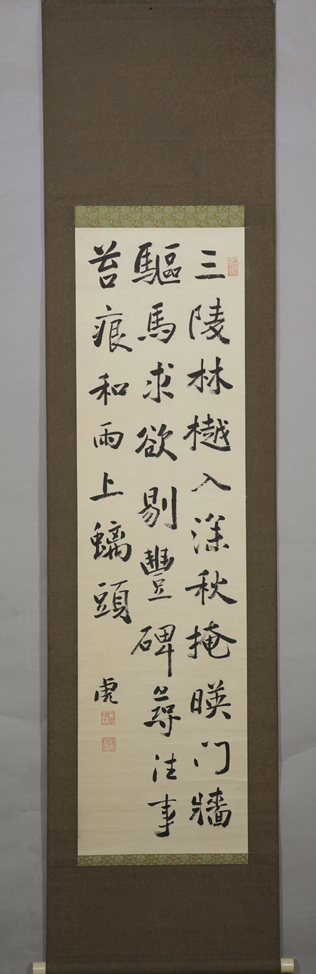 三陵林樾入深秋掩暎门牆
驅馬求欲剔豐碑尋往事
苔痕和雨上螭頭
虎